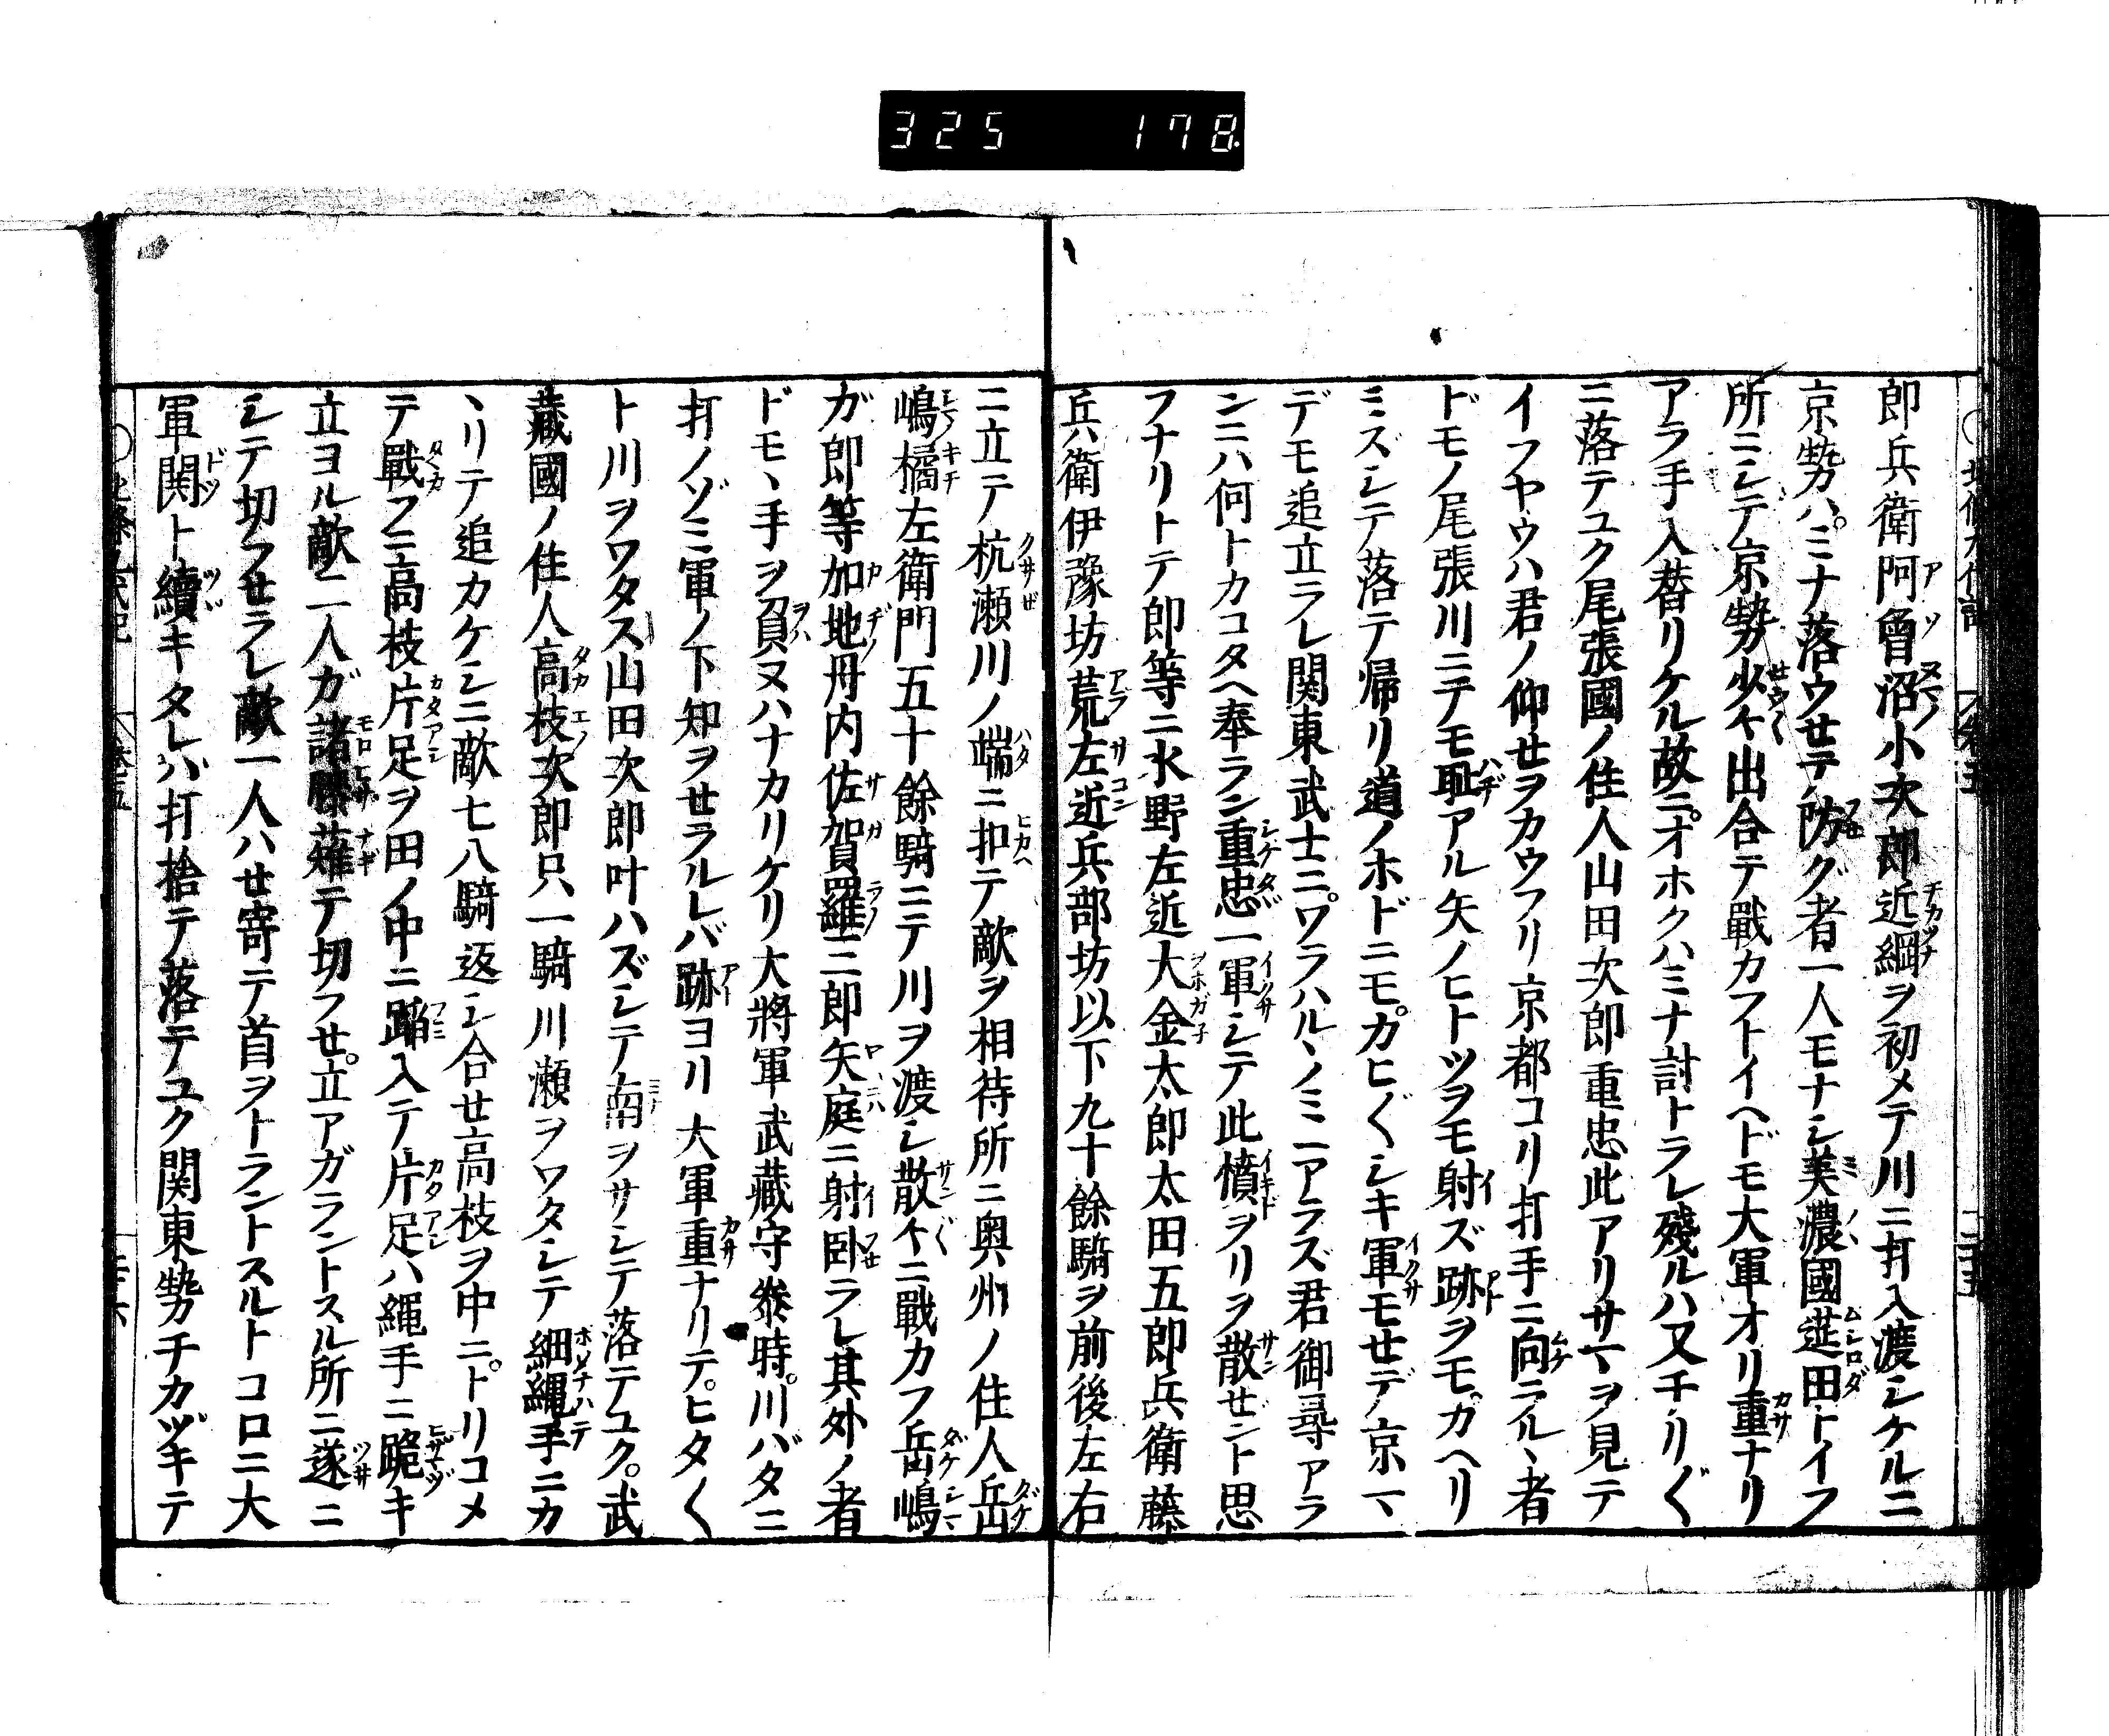 325 178
郎兵衛阿曾沼小次郎近綱ヲ初メテ川ニ打入渡シケルニ
京勢ハミナ落ウセテ防グ者一人モナシ美濃國莚田トイフ
所ニシテ京勢少々出合テ戰カフトイヘドモ大軍オリ重ナリ
アラ手入替リケル故ニオホクハミナ討トラレ殘ルハ又チリ〴〵
ニ落テユク尾張國ノ住人山田次郎重忠此アリサマヲ見テ
イフヤウハ君ノ仰セヲカウフリ京都コリ打手ニ向ラルヽ者
ドモノ尾張川ニテモ耻アル矢ノヒトツヲモ射ズ跡ヲモカヘリ
ミズシテ落テ帰リ道ノホドニモカヒ〴〵シキ軍モセデ京マ
デモ追立ラレ関東武士ニワラハルヽノミニアラズ君御尋アラ
ンニハ何トカコタヘ奉ラン重忠一軍シテ此憤ヲリヲ散ゼント思
フナリトテ郎等ニ水野左近大金太郎太田五郎兵衛藤
兵衛伊豫坊荒左近兵部坊以下九十餘騎ヲ前後左右
ニ立テ杭瀬川ノ端ニ扣テ敵ヲ相待所ニ奥州ノ住人岳
嶋橘左衛門五十餘騎ニテ川ヲ渡シ散々ニ戰カフ岳嶋
ガ郎等加地丹内佐賀羅三郎矢庭ニ射卧ラレ其外ノ者
ドモヽ手ヲ負ヌハナカリケリ大將軍武藏守泰時川バタニ
打ノゾミ軍ノ下知ヲセラルレバ跡ヨリ大軍重ナリテヒタ〳〵
ト川ヲワタス山田次郎叶ハズシテ南ヲサシテ落テユク武
藏國ノ住人高枝次郎只一騎川瀬ヲワタシテ細縄手ニカ
ヽリテ追カケシニ敵七八騎返シ合セ高枝ヲ中ニトリコメ
テ戰フニ高枝片足ヲ田ノ中ニ踏入テ片足ハ縄手ニ跪キ
立ヨル敵二人ガ諸膝薙テ切フセ立アガラントスル所ニ遂ニ
シテ切フセラレ敵一人ハセ寄テ首ヲトラントスルトコロニ大
軍関ト續キタレハ打捨テ落テユク関東勢チカヅキテ